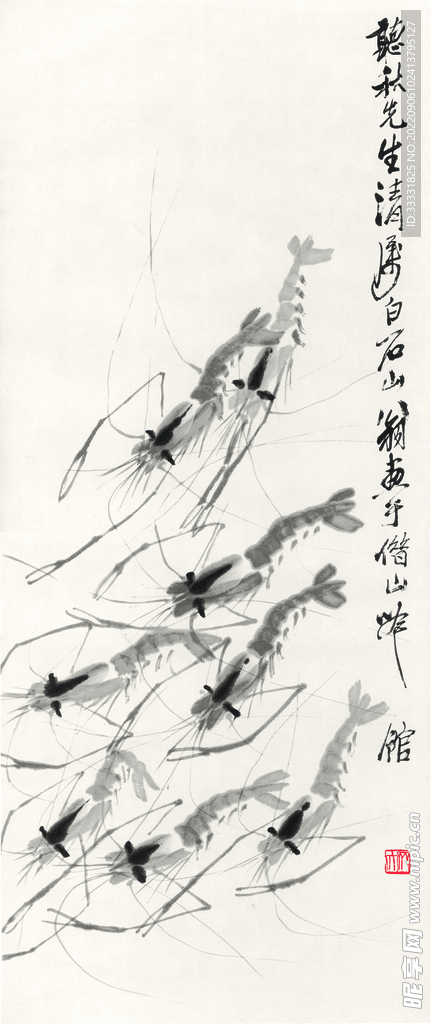 聽秋先生清属白石山翁畫于借山吟
館
ID:33331825 NO:20220906102413795127
昵享网 www.nipic.cn